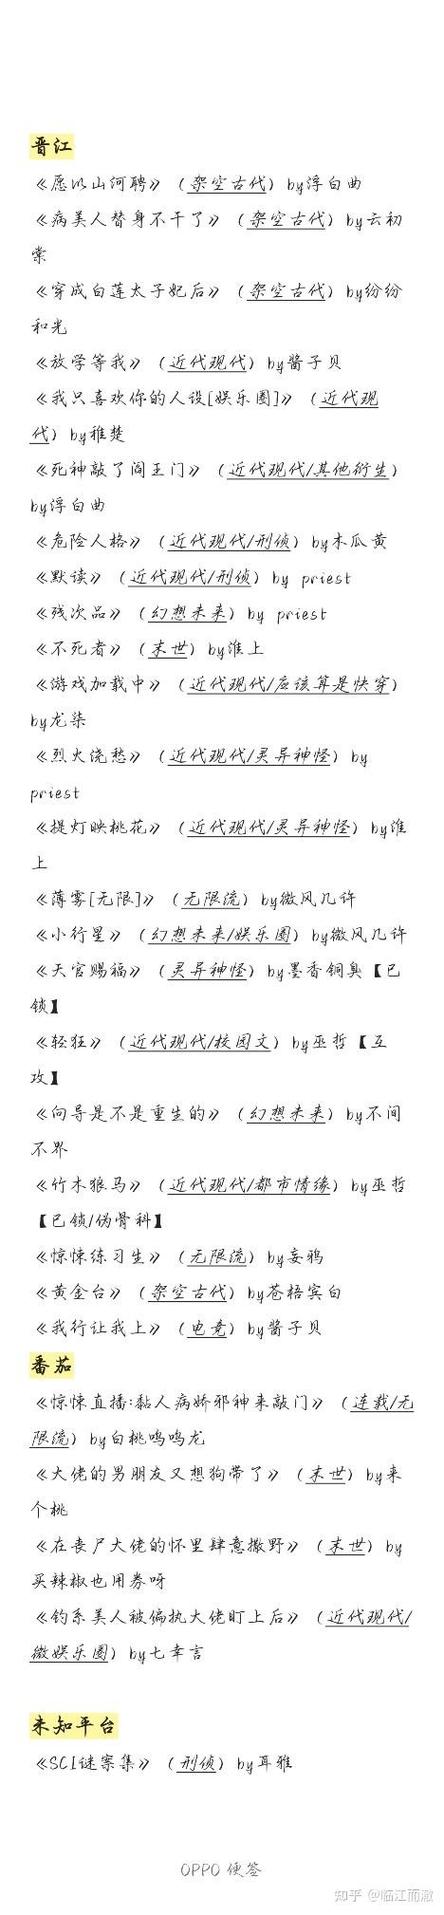 晋江
《愿以山河聘》（架空古代）by浮白曲
《病美人替身不干了》（架空古代）by云初
棠
《穿成白莲太子妃后》（架空古代）by纷纷
和光
《放学等我》（近代现代）by酱子贝
《我只喜欢你的人设[娱乐圈]》（近代现
代）by稚楚
《死神敲了阎王门》（近代现代/其他衍生）
by浮白曲
《危险人格》（近代现代/刑侦）by木瓜黄
《默读》（近代现代/刑侦）by priest
《残次品》（幻想未来）by priest
《不死者》（末世）by淮上
《游戏加载中》（近代现代/应该算是快穿）
by龙柒
《烈火浇愁》（近代现代/灵异神怪）by
priest
《提灯映桃花》（近代现代/灵异神怪）by淮
上
《薄雾[无限]》（无限流）by微风几许
《小行星》（幻想未来/娱乐圈）by微风几许
《天官赐福》（灵异神怪）by墨香铜臭【已
锁】
《轻狂》（近代现代/校园文）by巫哲【互
攻】
《向导是不是重生的》（幻想未来）by不间
不界
《竹木狼马》（近代现代/都市情缘）by巫哲
【已锁/伪骨科】
《惊悚练习生》（无限流）by妄鸦
《黄金台》（架空古代）by苍梧宾白
《我行让我上》（电竞）by酱子贝
番茄
《惊悚直播:黏人病娇邪神来敲门》（连载/无
限流）by白桃呜呜龙
《大佬的男朋友又想狗带了》（末世）by来
个桃
《在丧尸大佬的怀里肆意撒野》（末世）by
买辣椒也用券呀
《钓系美人被偏执大佬盯上后》（近代现代/
微娱乐圈）by七幸言
未知平台
《SCI谜案集》（刑侦）by耳雅
OPPO 便签
知乎 @临江而澈